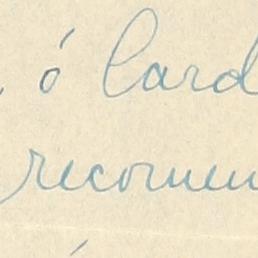 ó Card
recomen